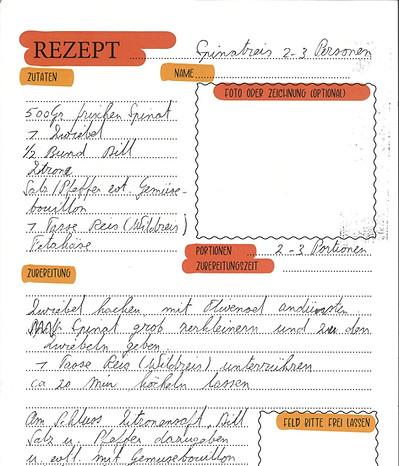 REZEPT Spinatreis 2-3 Personen
ZUTATEN
NAME
500Gr frischen Spinat
1 Zwiebel
1/2 Bund Dill
Zitrone
Salz/Pfeffer evt. Gemüse-
bouillon
1 Tasse Reis (Wildreis)
Fetakäse
FOTO ODER ZEICHNUNG (OPTIONAL)
PORTIONEN 2-3 Portionen
ZUBEREITUNGSZEIT
ZUBEREITUNG
Zwiebel hacken, mit Olivenoel andünsten
Spinat grob zerkleinern und zu den
Zwiebeln geben.
1 Tasse Reis (Wildreis) unterrühren
ca 20 min köcheln lassen
Am Schluss Zitronensaft, Dill
Salz u. Pfeffer dazugeben
u. evtl. mit Gemüsebouillon
FELD BITTE FREI LASSEN